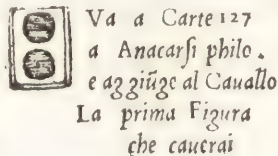 Va a Carte 127
a Anacarſi philo.
e aggiũge al Cauallo
La prima Figura
che cauerai